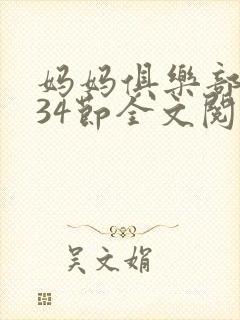 妈妈俱樂部
34節全文閱
吴文娟